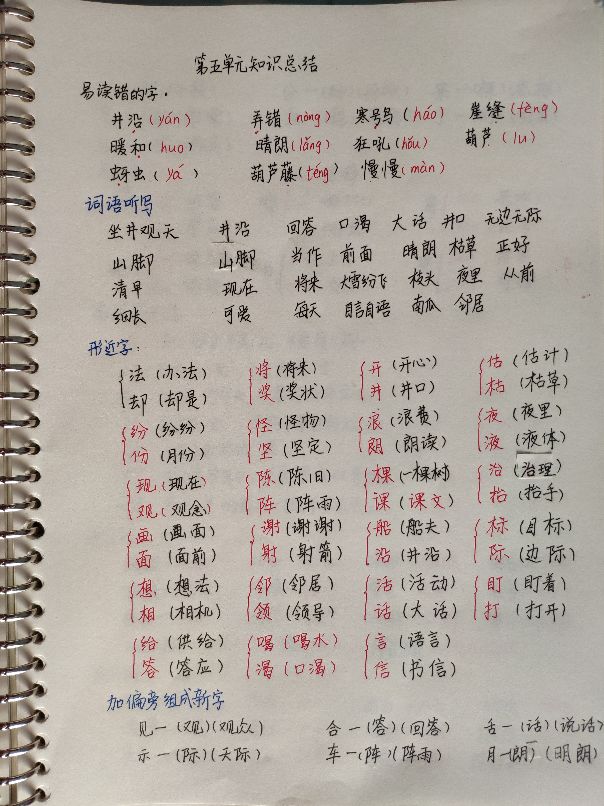 第五单元知识总结
易读错的字.
井沿(yán) 弄错(nòng) 寒号鸟(háo) 崖缝(fèng)
暖和(huo) 晴朗(lǎng) 狂吼(hǒu) 葫芦(lu)
蚜虫(yá) 葫芦藤(téng) 慢慢(màn)
词语听写
坐井观天 井沿 回答 口渴 大话 井口 无边无际
山脚 山脚 当作 前面 晴朗 枯草 正好
清早 现在 将来 大雪纷飞 枝头 夜里 从前
细长 可爱 每天 自言自语 南瓜 邻居
形近字:
法(办法) 将(将来) 开(开心) 估(估计)
却(却是) 奖(奖状) 井(井口) 枯(枯草)
纷(纷纷) 怪(怪物) 浪(浪费) 夜(夜里)
份(月份) 坚(坚定) 朗(朗读) 液(液体)
现(现在) 陈(陈旧) 棵(一棵树) 治(治理)
观(观念) 阵(阵雨) 课(课文) 抬(抬手)
画(画面) 谢(谢谢) 船(船夫) 标(目标)
面(面前) 射(射箭) 沿(井沿) 际(边际)
想(想法) 邻(邻居) 活(活动) 盯(盯着)
相(相机) 领(领导) 话(大话) 打(打开)
给(供给) 喝(喝水) 言(语言)
答(答应) 渴(口渴) 信(书信)
加偏旁组成新字
见一(观)(观众) 合一(答)(回答) 舌一(话)(说话)
示一(际)(天际) 车一(阵)(阵雨) 月一(朗)(明朗)